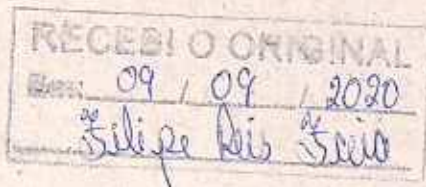 RECEBI O ORIGINAL
Em: 09 / 09 / 2020
Filipe Reis